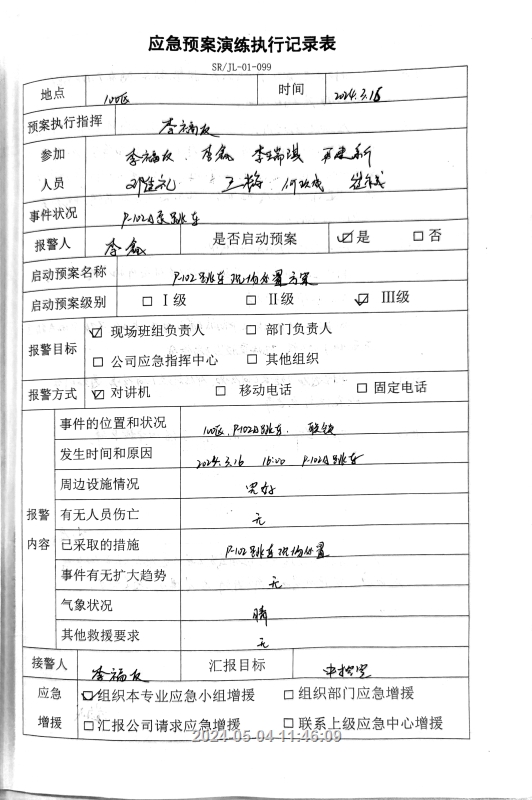 应急预案演练执行记录表
SR/JL-01-099
地点 100区 时间 2024.3.16
预案执行指挥 李福友
参加 李福友 李鑫 李瑞琪
人员 邓维礼 王梅
事件状况 P-102A泵跳车
报警人 李鑫 是否启动预案 ☑是 □否
启动预案名称 P-102跳车现场处置方案
启动预案级别 □Ⅰ级 □Ⅱ级 ☑Ⅲ级
报警目标 ☑现场班组负责人 □部门负责人
□公司应急指挥中心 □其他组织
报警方式 ☑对讲机 □移动电话 □固定电话
报警内容
事件的位置和状况 100区,P-102A跳车
发生时间和原因 2024.3.16 16:00 P-102A跳车
周边设施情况 完好
有无人员伤亡 无
已采取的措施 P-102跳车现场处置
事件有无扩大趋势 无
气象状况 晴
其他救援要求 无
接警人 李福友 汇报目标 中控室
应急 ☑组织本专业应急小组增援 □组织部门应急增援
增援 □汇报公司请求应急增援 □联系上级应急中心增援
2024-05-04 11:46:09